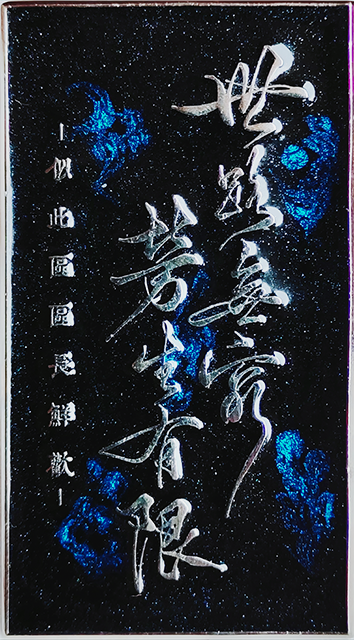 世路無窮
劳生有限
—似此區區長鮮歡—